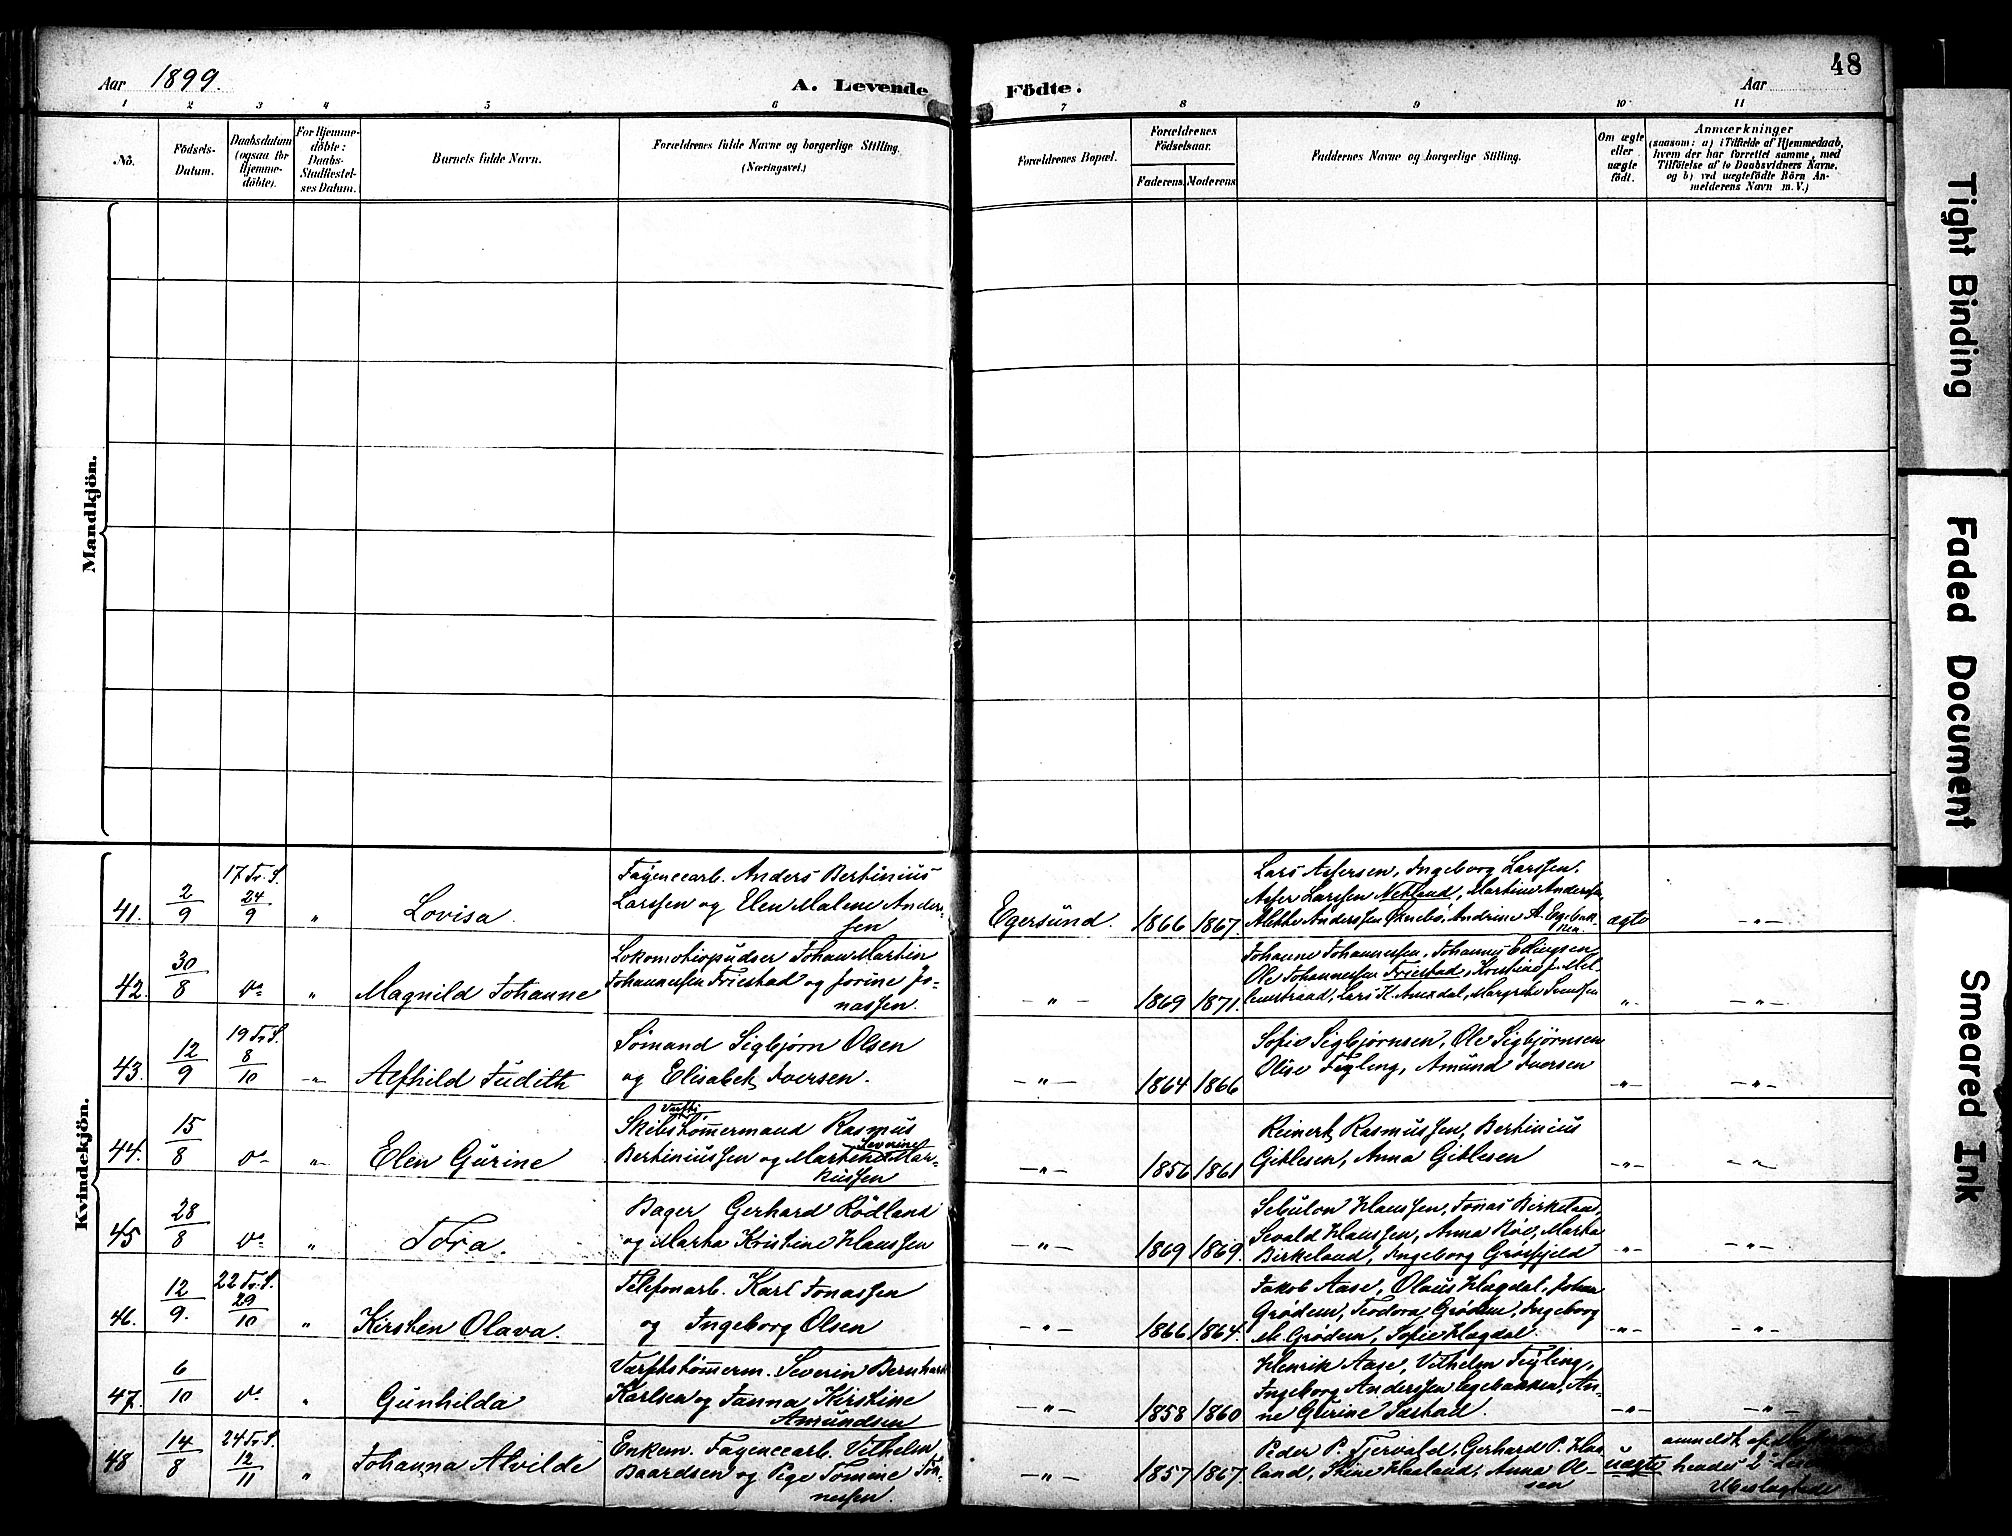 48
Aar 1899.
A. Levende Födte.
Aar
1 2 3 4 5 6 7 8 9 10 11
No.
Födsels-
Datum.
Daabsdatum
(ogsaa for
Hjemme-
döbte).
For Hjemme-
döbte:
Daabs-
Stadfæstel-
ses Datum.
Barnets fulde Navn.
Forældrenes fulde Navne og borgerlige Stilling.
(Næringsvei.)
Forældrenes Bopæl.
Forældrenes
Födselsaar.
Faderens. Moderens.
Faddernes Navne og borgerlige Stilling.
Om ægte
eller
uægte
födt.
Anmærkninger
(saasom: a) i Tilfælde af Hjemmedaab,
hvem der har forrettet samme, med
Tilföielse af to Daabsvidners Navne,
og b) ved uægtefödte Börn An-
melderens Navn m. V.)
Mandkjön.
Kvindekjön.
41. 2/9 17 Tr. S. 24/9 " Lovisa.
Fayencearb. Anders Bertinius
Larssen og Elen Malene Anders-
sen
Egersund. 1866 1867.
Lars Assersen, Ingeborg Larssen,
Asser Larssen Netland, Martine Anderssen,
Andersen Andrine A. Egebak-
ken
ægte -"-
42. 30/8 do " Magnild Johanne
Lokomotivpudser Johan Martin
Johannessen Friestad og Jorine Jo-
nassen.
-"- 1869 1871.
Johanne Johannessen, Johannes
Ole Johannessen Friestad,
Lars H. Margrete Svendsen
-"- -"-
43. 12/9 19 Tr. S. 8/10 -"- Alfhild Judith
Sömand Sigbjörn Olsen
og Elisabet Iversen.
-"- 1864 1866
Sofie Sigbjørnsen, Ole Sigbjørnsen
Olise Tegling, Amund Iversen
-"- -"-
44. 15/8 do -"- Elen Gurine
Værfts
Skibstømmermand Rasmus
Severine
Bertiniussen og Martine Mar-
kussen
-"- 1856 1861
Reinert Rasmussen, Bertinius
Gitlesen, Anna Gitlesen
-"- -"-
45 28/8 do " Tora.
Bager Gerhard Rödland
og Marta Kristine Klaussen
-"- 1869 1869.
Sebulon Klaussen, Jonas Birkeland,
Sevald Klaussen, Anna Marta
Birkeland, Ingeborg Grøsfjeld
-"- -"-
46. 12/9. 22 Tr. S. 29/10 " Kirsten Olava.
Telefonarb. Karl Jonassen
og Ingeborg Olsen
-"- 1866 1864.
Jakob Aase, Olaus Hagdal, Johan
Grødem, Teodora Grødem, Ingeborg
M. Grødem, Sofie Hagdal.
-"- -"-
47. 6/10 do " Gunhilda
Værftstømmerm. Severin Bernhard
Karlsen og Janna Kirstine
Amundsen
-"- 1858 1860
Henrik Aase, Vilhelm Tegling,
Ingeborg Anderssen Egebakken, An-
ne Gurine
-"- -"-
48 14/8 24 Tr. S. 12/11 " Johanna Alvilde
Enkem. Fayencearb. Vilhelm
Baardsen og Pige Tomine Tön-
nessen.
-"- 1857 1867.
Peder P. Tjervald, Gerhard P. Haa-
land, Stine Haaland, Anna Ol-
sen
uægte
anmeldt af
hendes 2det
Tight Binding
Faded Document
Smeared Ink